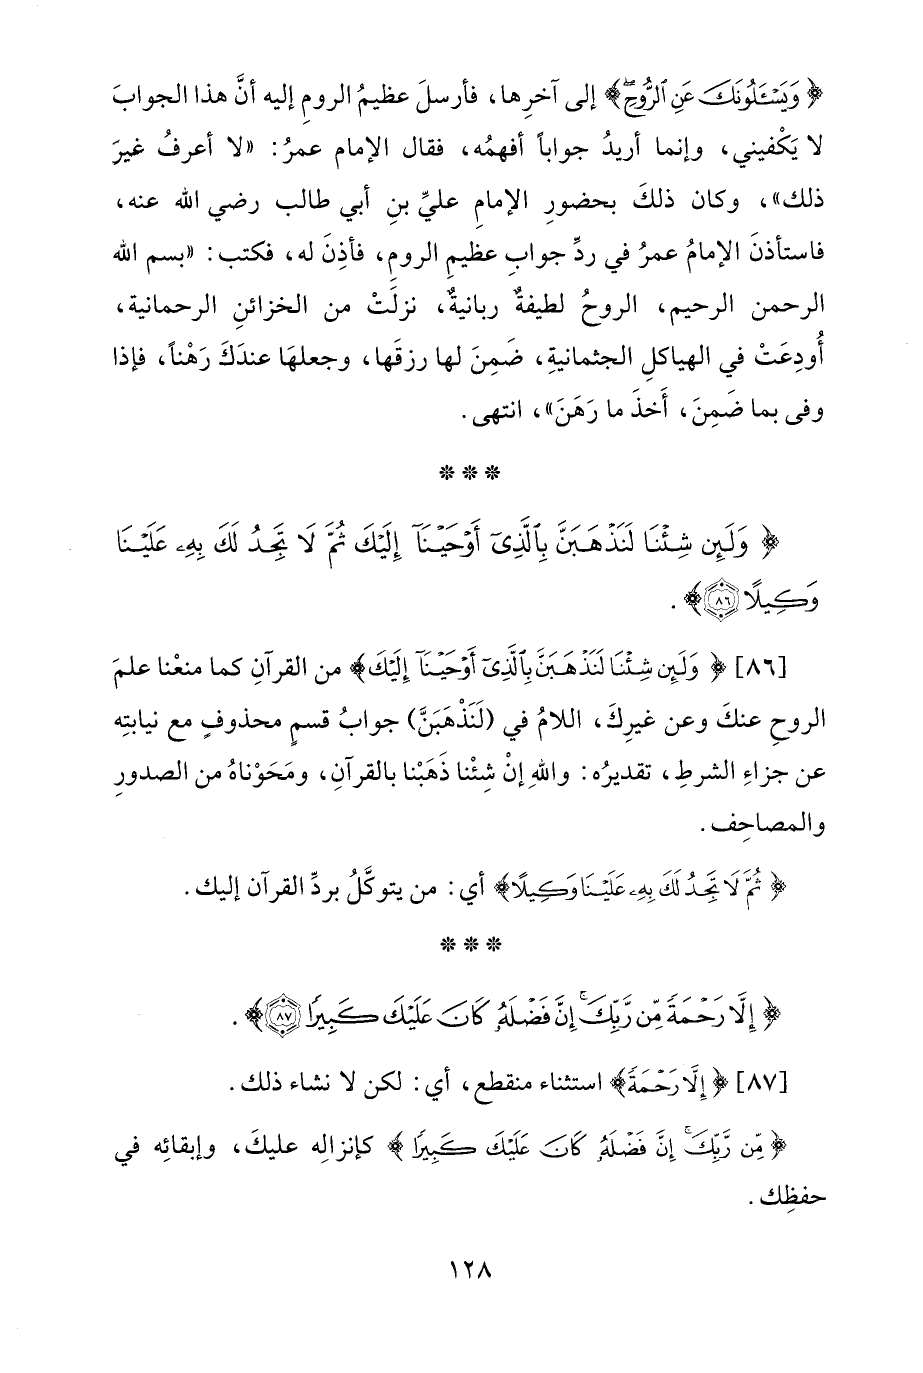 ﴿ وَيَسْـَٔلُونَكَ عَنِ ٱلرُّوحِ ۖ ﴾ إلى آخرِها، فأرسلَ عظيمُ الرومِ إليه أنَّ هذا الجوابَ
لا يَكْفيني، وإنما أريدُ جواباً أفهمُه، فقال الإمام عمرُ: «لا أعرفُ غيرَ
ذلك»، وكان ذلكَ بحضورِ الإمامِ عليِّ بنِ أبي طالب رضي الله عنه،
فاستأذنَ الإمامُ عمرُ في ردِّ جوابِ عظيمِ الرومِ، فأذِنَ له، فكتب: «بسم الله
الرحمن الرحيم، الروحُ لطيفةٌ ربانيةٌ، نزلَتْ من الخزائنِ الرحمانية،
أُودِعَتْ في الهياكلِ الجثمانيةِ، ضَمِنَ لها رزقَها، وجعلهَا عندَكَ رَهْناً، فإذا
وفى بما ضَمِنَ، أَخذَ ما رَهَنَ»، انتهى.
***
﴿ وَلَئِن شِئْنَا لَنَذْهَبَنَّ بِٱلَّذِىٓ أَوْحَيْنَآ إِلَيْكَ ثُمَّ لَا تَجِدُ لَكَ بِهِۦ عَلَيْنَا
وَكِيلًا ٨٦ ﴾ .
[٨٦] ﴿ وَلَئِن شِئْنَا لَنَذْهَبَنَّ بِٱلَّذِىٓ أَوْحَيْنَآ إِلَيْكَ ﴾ من القرآنِ كما منعْنا علمَ
الروحِ عنكَ وعن غيرِكَ، اللامُ في (لَنَذْهَبَنَّ) جوابُ قسمٍ محذوفٍ مع نيابتِه
عن جزاءِ الشرطِ، تقديرُه: واللهِ إنْ شِئْنا ذَهَبْنا بالقرآنِ، ومَحَوْناهُ من الصدورِ
والمصاحِف.
﴿ ثُمَّ لَا تَجِدُ لَكَ بِهِۦ عَلَيْنَا وَكِيلًا ﴾ أي: من يتوكَّلُ بردِّ القرآن إليك.
***
﴿ إِلَّا رَحْمَةً مِّن رَّبِّكَ ۚ إِنَّ فَضْلَهُۥ كَانَ عَلَيْكَ كَبِيرًا ٨٧ ﴾ .
[٨٧] ﴿ إِلَّا رَحْمَةً ﴾ استثناء منقطع، أي: لكن لا نشاء ذلك.
﴿ مِّن رَّبِّكَ ۚ إِنَّ فَضْلَهُۥ كَانَ عَلَيْكَ كَبِيرًا ﴾ كإنزالِه عليكَ، وإبقائِه في
حفظِك.
١٢٨